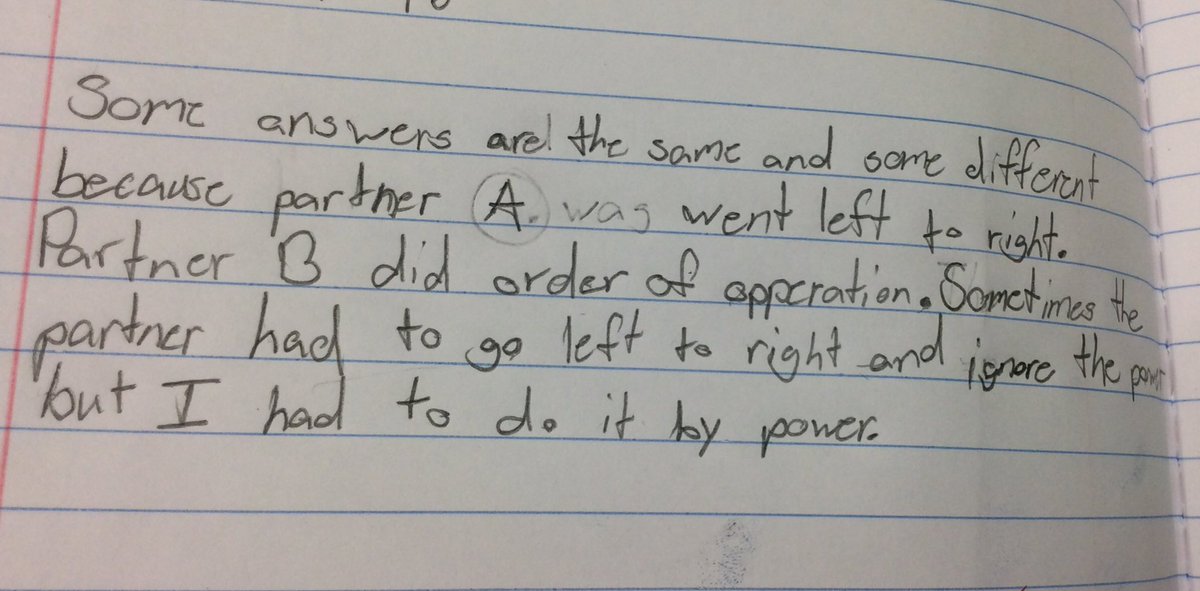 Some answers are the same and some different
because partner A. was went left to right.
Partner B did order of opperation. Sometimes the
partner had to go left to right and ignore the power
but I had to do it by power.